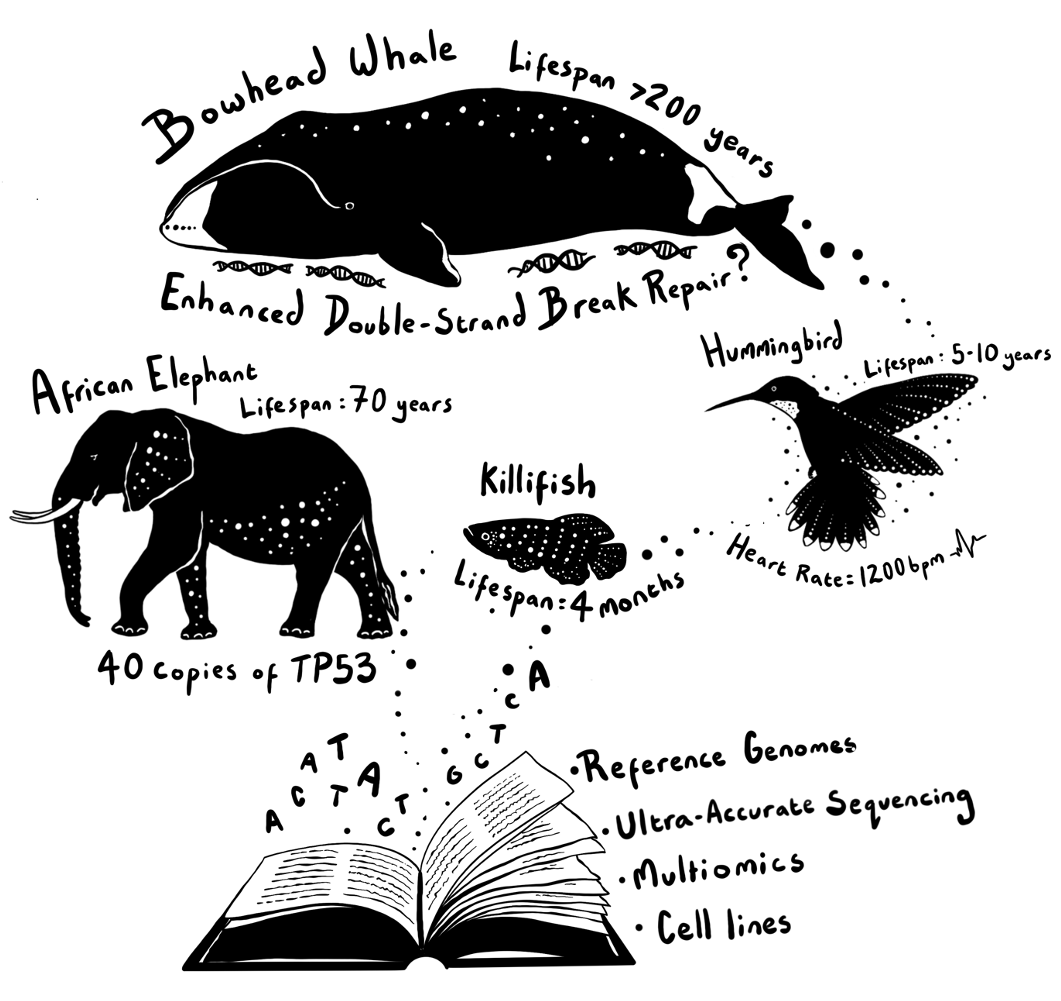 Bowhead Whale
Lifespan >200 years
Enhanced Double-Strand Break Repair?
African Elephant
Lifespan: 70 years
40 copies of TP53
Hummingbird
Lifespan: 5-10 years
Heart Rate: 1200bpm
Killifish
Lifespan: 4 months
A
C
T
C
G
A
T
A
C
T
A
T
C
• Reference Genomes
• Ultra-Accurate Sequencing
• Multiomics
• Cell lines